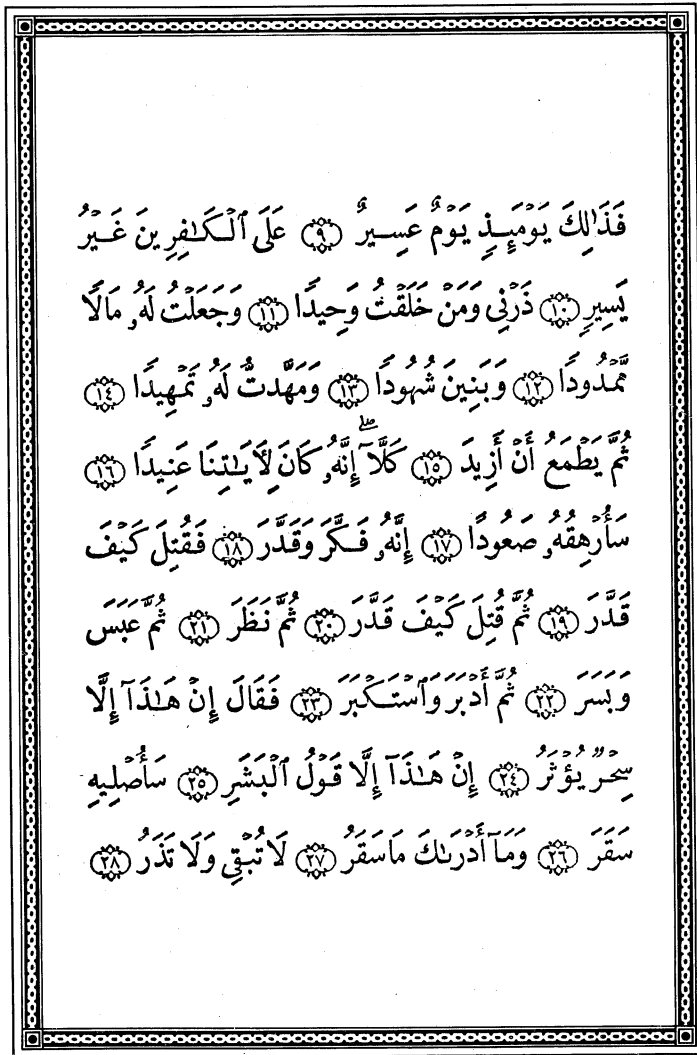 فَذَٰلِكَ يَوْمَئِذٍ يَوْمٌ عَسِيرٌ ﴿٩﴾ عَلَى ٱلْكَٰفِرِينَ غَيْرُ
يَسِيرٍ ﴿١٠﴾ ذَرْنِى وَمَنْ خَلَقْتُ وَحِيدًا ﴿١١﴾ وَجَعَلْتُ لَهُۥ مَالًا
مَّمْدُودًا ﴿١٢﴾ وَبَنِينَ شُهُودًا ﴿١٣﴾ وَمَهَّدتُّ لَهُۥ تَمْهِيدًا ﴿١٤﴾
ثُمَّ يَطْمَعُ أَنْ أَزِيدَ ﴿١٥﴾ كَلَّآ ۖ إِنَّهُۥ كَانَ لِأَيَٰتِنَا عَنِيدًا ﴿١٦﴾
سَأُرْهِقُهُۥ صَعُودًا ﴿١٧﴾ إِنَّهُۥ فَكَّرَ وَقَدَّرَ ﴿١٨﴾ فَقُتِلَ كَيْفَ
قَدَّرَ ﴿١٩﴾ ثُمَّ قُتِلَ كَيْفَ قَدَّرَ ﴿٢٠﴾ ثُمَّ نَظَرَ ﴿٢١﴾ ثُمَّ عَبَسَ
وَبَسَرَ ﴿٢٢﴾ ثُمَّ أَدْبَرَ وَٱسْتَكْبَرَ ﴿٢٣﴾ فَقَالَ إِنْ هَٰذَآ إِلَّا
سِحْرٌ يُؤْثَرُ ﴿٢٤﴾ إِنْ هَٰذَآ إِلَّا قَوْلُ ٱلْبَشَرِ ﴿٢٥﴾ سَأُصْلِيهِ
سَقَرَ ﴿٢٦﴾ وَمَآ أَدْرَىٰكَ مَا سَقَرُ ﴿٢٧﴾ لَا تُبْقِى وَلَا تَذَرُ ﴿٢٨﴾